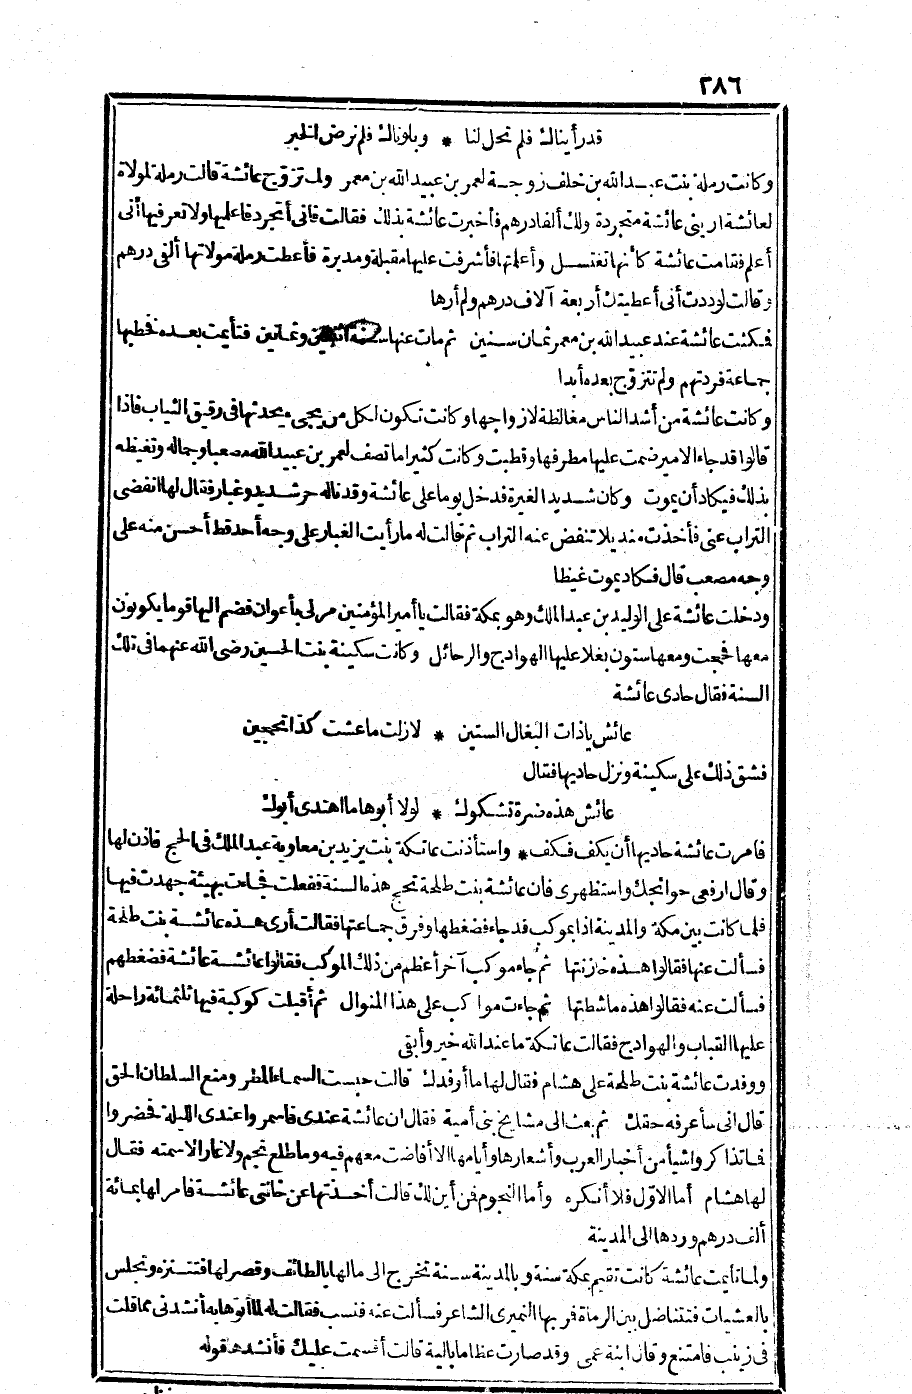 ٢٨٦
قد رأيناك فلم تحل لنا * وبلوناك فلم نرض الخبر
وكانت رملة بنت عبد الله بن خلف زوجة لعمر بن عبيد الله بن معمر ولما تزوج عائشة قالت رملة لمولاة
لعائشة اريني عائشة متجردة ولك ألفا درهم فأخبرت عائشة بذلك فقالت فاني أتجرد فأعليها ولا تعرفيها أني
أعلم فقامت عائشة كأنها تغتسل وأعلمتها فأشرفت عليها مقبلة ومدبرة فأعطت رملة مولاتها ألفي درهم
وقالت لوددت أني أعطيتك أربعة آلاف درهم ولم أرها
فمكثت عائشة عند عبيد الله بن معمر ثمان سنين ثم مات عنها سنة اثنتين وثمانين فتأيمت بعده فخطبها
جماعة فردتهم ولم تتزوج بعده أبدا
وكانت عائشة من أشد الناس مغالظة لازواجها وكانت تكون لكل من يجيء يحدثها في رقيق الثياب فاذا
قالوا قد جاء الامير ضمت عليها مطرفها وقطبت وكانت كثيرا ما تصف لعمر بن عبيد الله مصعبا وجماله وتغيظه
بذلك فيكاد أن يموت وكان شديد الغيرة فدخل يوما على عائشة وقد ناله حر شديد وغبار فقال لها انفضي
التراب عني فأخذت منديلا تنفض عنه التراب ثم قالت له ما رأيت الغبار على وجه أحد قط أحسن منه على
وجه مصعب قال فكاد يموت غيظا
ودخلت عائشة على الوليد بن عبد الملك وهو بمكة فقالت يا أمير المؤمنين مر لي بأعوان فضم اليها قوما يكونون
معها فحجت ومعها ستون بغلا عليها الهوادج والرحائل وكانت سكينة بنت الحسين رضي الله عنهما في تلك
السنة فقال حادي عائشة
عائش يا ذات البغال الستين * لا زلت ما عشت كذا تحجين
فشق ذلك على سكينة ونزل حاديها فقال
عائش هذه ضرة تشكوك * لولا أبوها ما اهتدى أبوك
فامرت عائشة حاديها أن يكف فكف * واستأذنت عاتكة بنت يزيد بن معاوية عبد الملك في الحج فاذن لها
وقال ارفعي حوائجك واستظهري فان عائشة بنت طلحة تحج هذه السنة ففعلت فجاءت بهيئة جهدت فيها
فلما كانت بين مكة والمدينة اذا بموكب قد جاء فضغطها وفرق جماعتها فقالت أرى هذه عائشة بنت طلحة
فسألت عنها فقالوا هذه خازنتها ثم جاء موكب آخر أعظم من ذلك الموكب فقالوا عائشة عائشة فضغطهم
فسألت عنه فقالوا هذه ماشطتها ثم جاءت مواكب على هذا المنوال ثم أقبلت كوكبة فيها ثلثمائة راحلة
عليها القباب والهوادج فقالت عاتكة ما عند الله خير وأبقى
ووفدت عائشة بنت طلحة على هشام فقال لها ما أوفدك قالت حبست السماء المطر ومنع السلطان الحق
قال اني سأعرفه حقك ثم بعث الى مشايخ بني أمية فقال ان عائشة عندي فاسمروا عندي الليلة فحضروا
فما تذاكروا شيأ من أخبار العرب وأشعارها وأيامها الا أفاضت معهم فيه وما طلع نجم ولا غار الا سمته فقال
لها هشام أما الاول فلا أنكره وأما النجوم فمن أين لك قالت أخذتها عن خالتي عائشة فامر لها بمائة
ألف درهم وردها الى المدينة
ولما تأيمت عائشة كانت تقيم بمكة سنة وبالمدينة سنة تخرج الى مالها بالطائف وقصر لها فتتنزه وتجلس
بالعشيات فتتناضل بين الرماة فمر بها النميري الشاعر فسألت عنه فنسب فقالت له لما أتوها به أنشدني مما قلت
في زينب فامتنع وقال ابنة عمي وقد صارت عظاما بالية قالت أقسمت عليك فأنشدها قوله